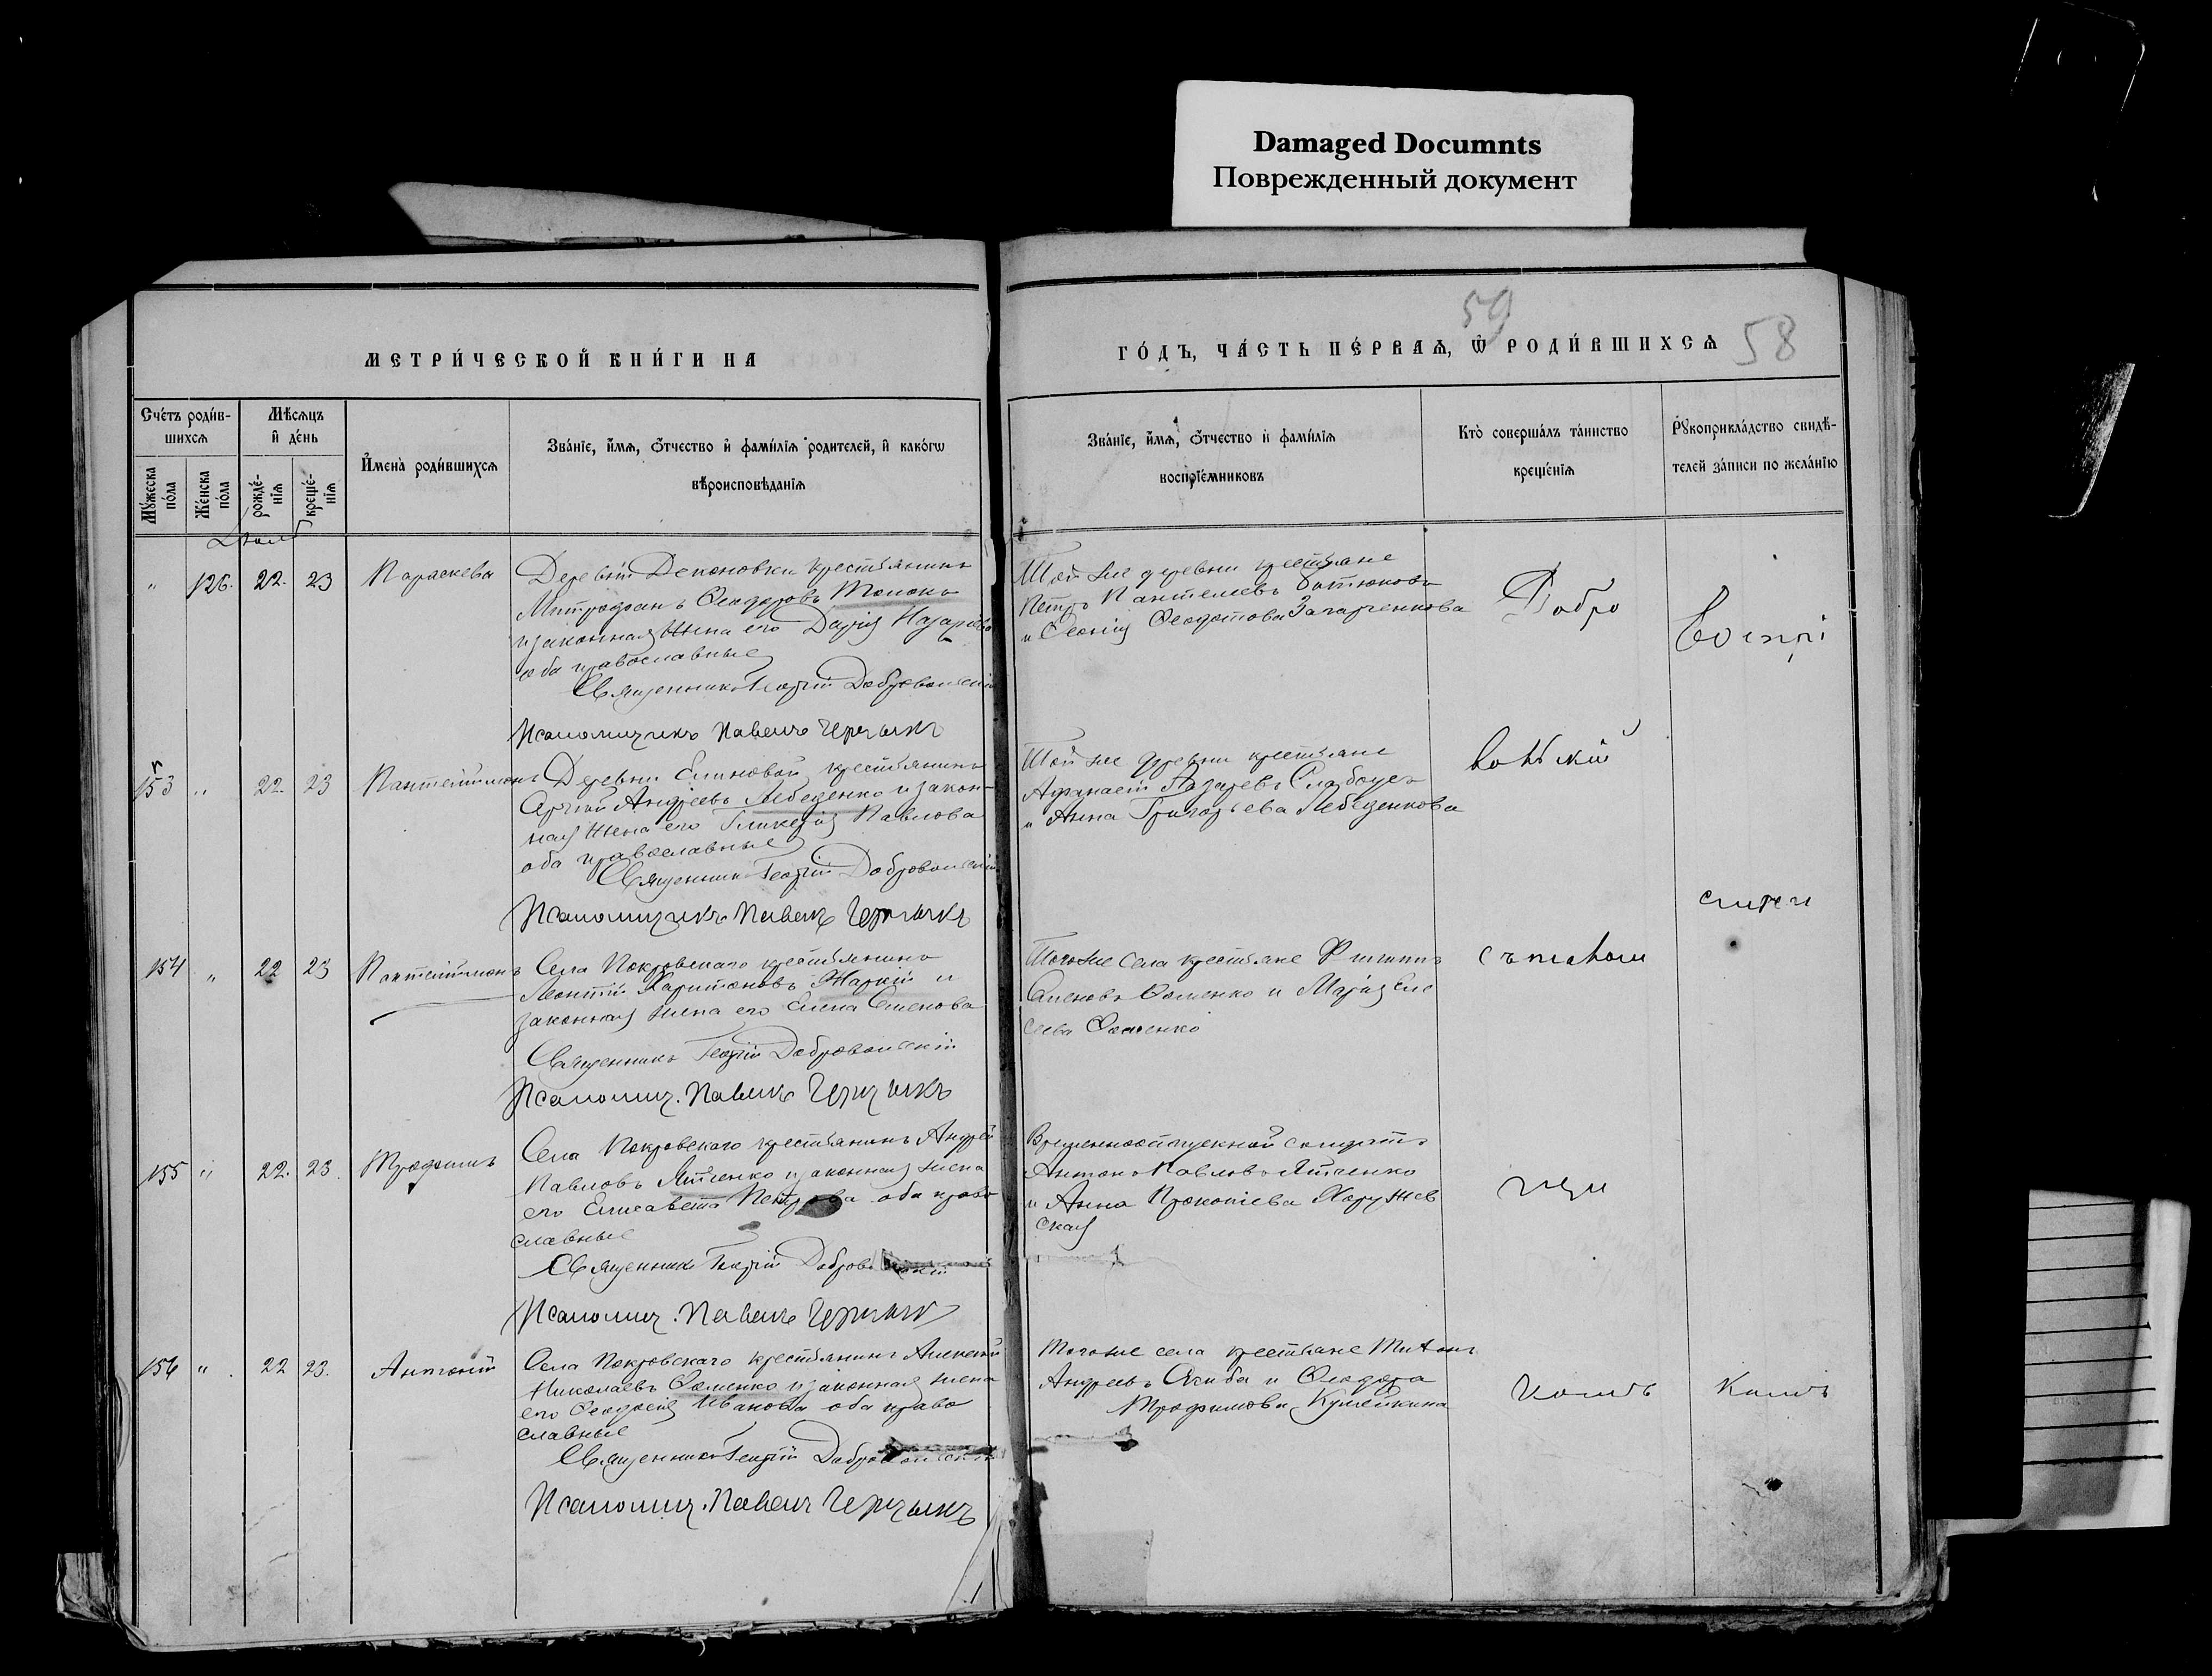 Damaged Documnts
Поврежденный документ
59
58
МЕТРИ́ЧЕСКОЙ КНИ́ГИ НА
ГО́ДЪ, ЧА́СТЬ ПЕ́РВАѦ, Ѽ РОДИ́ВШИХСѦ
Сче́тъ роди́в-
шихсѧ
Мѣ́сѧцъ
и҆ де́нь
Мꙋ́жеска
по́ла
Же́нска
по́ла
рожде́-
нїѧ
креще́-
нїѧ
И҆мена̀ роди́вшихсѧ
Зва́нїе, и҆́мѧ, ѻ҆́тчество и҆ фами́лїѧ родителей, и҆ како́гѡ
вѣроисповѣ́данїѧ
Зва́нїе, и҆́мѧ, ѻ҆́тчество и҆ фами́лїѧ
воспрїе́мниковъ
Кто̀ соверша́лъ та́инство
креще́нїѧ
Рꙋкоприкла́дство свидѣ́-
телей за́писи по жела́нїю
" 126. 22. 23 Параскева
Деревни Деконовки крестьянинъ
Митрофанъ Ѳеодоровъ
и законная жена его Дарія Назаріева
оба православные
Священникъ Георгій Добровольскій
Псаломщикъ Павелъ
Той же деревни крестьяне
Петръ Пантелеевъ
и Ѳеодотова Захарченкова
Добро
153 " 22. 23 Пантелеимонъ
Деревни Елиновой крестьянинъ
Андреевъ Лебеденко и закон-
ная жена его Гликерія Павлова
оба православные
Священникъ Георгій Добровольскій
Псаломщикъ Павелъ
Той же деревни крестьяне
Афанасій Лазаревъ
и Анна Григорьева Лебеденкова
вольскій
154 " 22 23 Пантелеимонъ
Села Покровскаго крестьянинъ
Леонтій Харитоновъ и
законная жена его Елена Семенова
Священникъ Георгій Добровольскій
Псаломщ. Павелъ
Тогоже села крестьяне Филиппъ
Семеновъ Фоменко и Марія Ели
сеева Фоменко
съ псалом
155 " 22. 23. Трофимъ
Села Покровскаго крестьянинъ Андрей
Павловъ Ятченко и законная жена
его Елисавета Петрова оба право
славные
Священникъ Георгій
Псаломщ. Павелъ
Временноотпускной солдатъ
Антонъ Павловъ Ятченко
и Анна Прокопіева Харужев
ская
щи
156 " 22 23. Антоній
Села Покровскаго крестьянинъ Алексей
Николаевъ Фоменко и законная жена
его Ѳеодосія Иванова оба право
славные
Священникъ Георгій Добровольскій
Псаломщ. Павелъ
Тогоже села крестьяне Титъ
Андреевъ и Ѳеодора
Трофимова
комъ